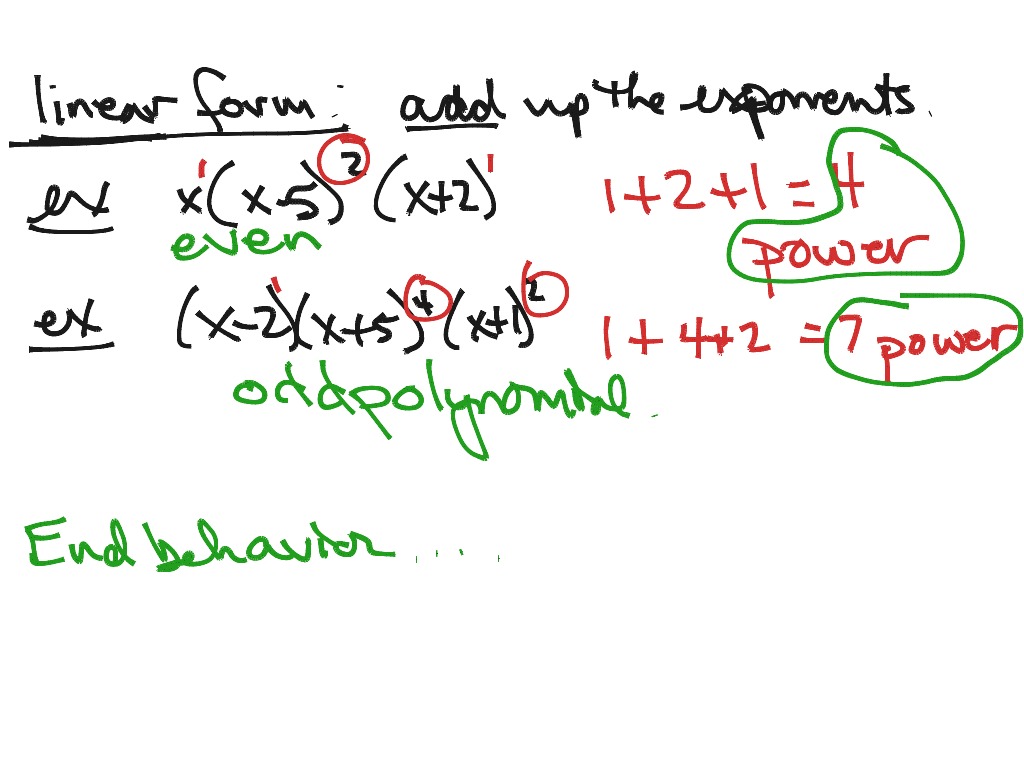 linear form: add up the exponents.
ex x¹(x-5)²(x+2)¹ 1+2+1=4
even power
ex (x-2)¹(x+5)⁴(x+1)² 1+4+2=7 power
odd polynomial.
End behavior....